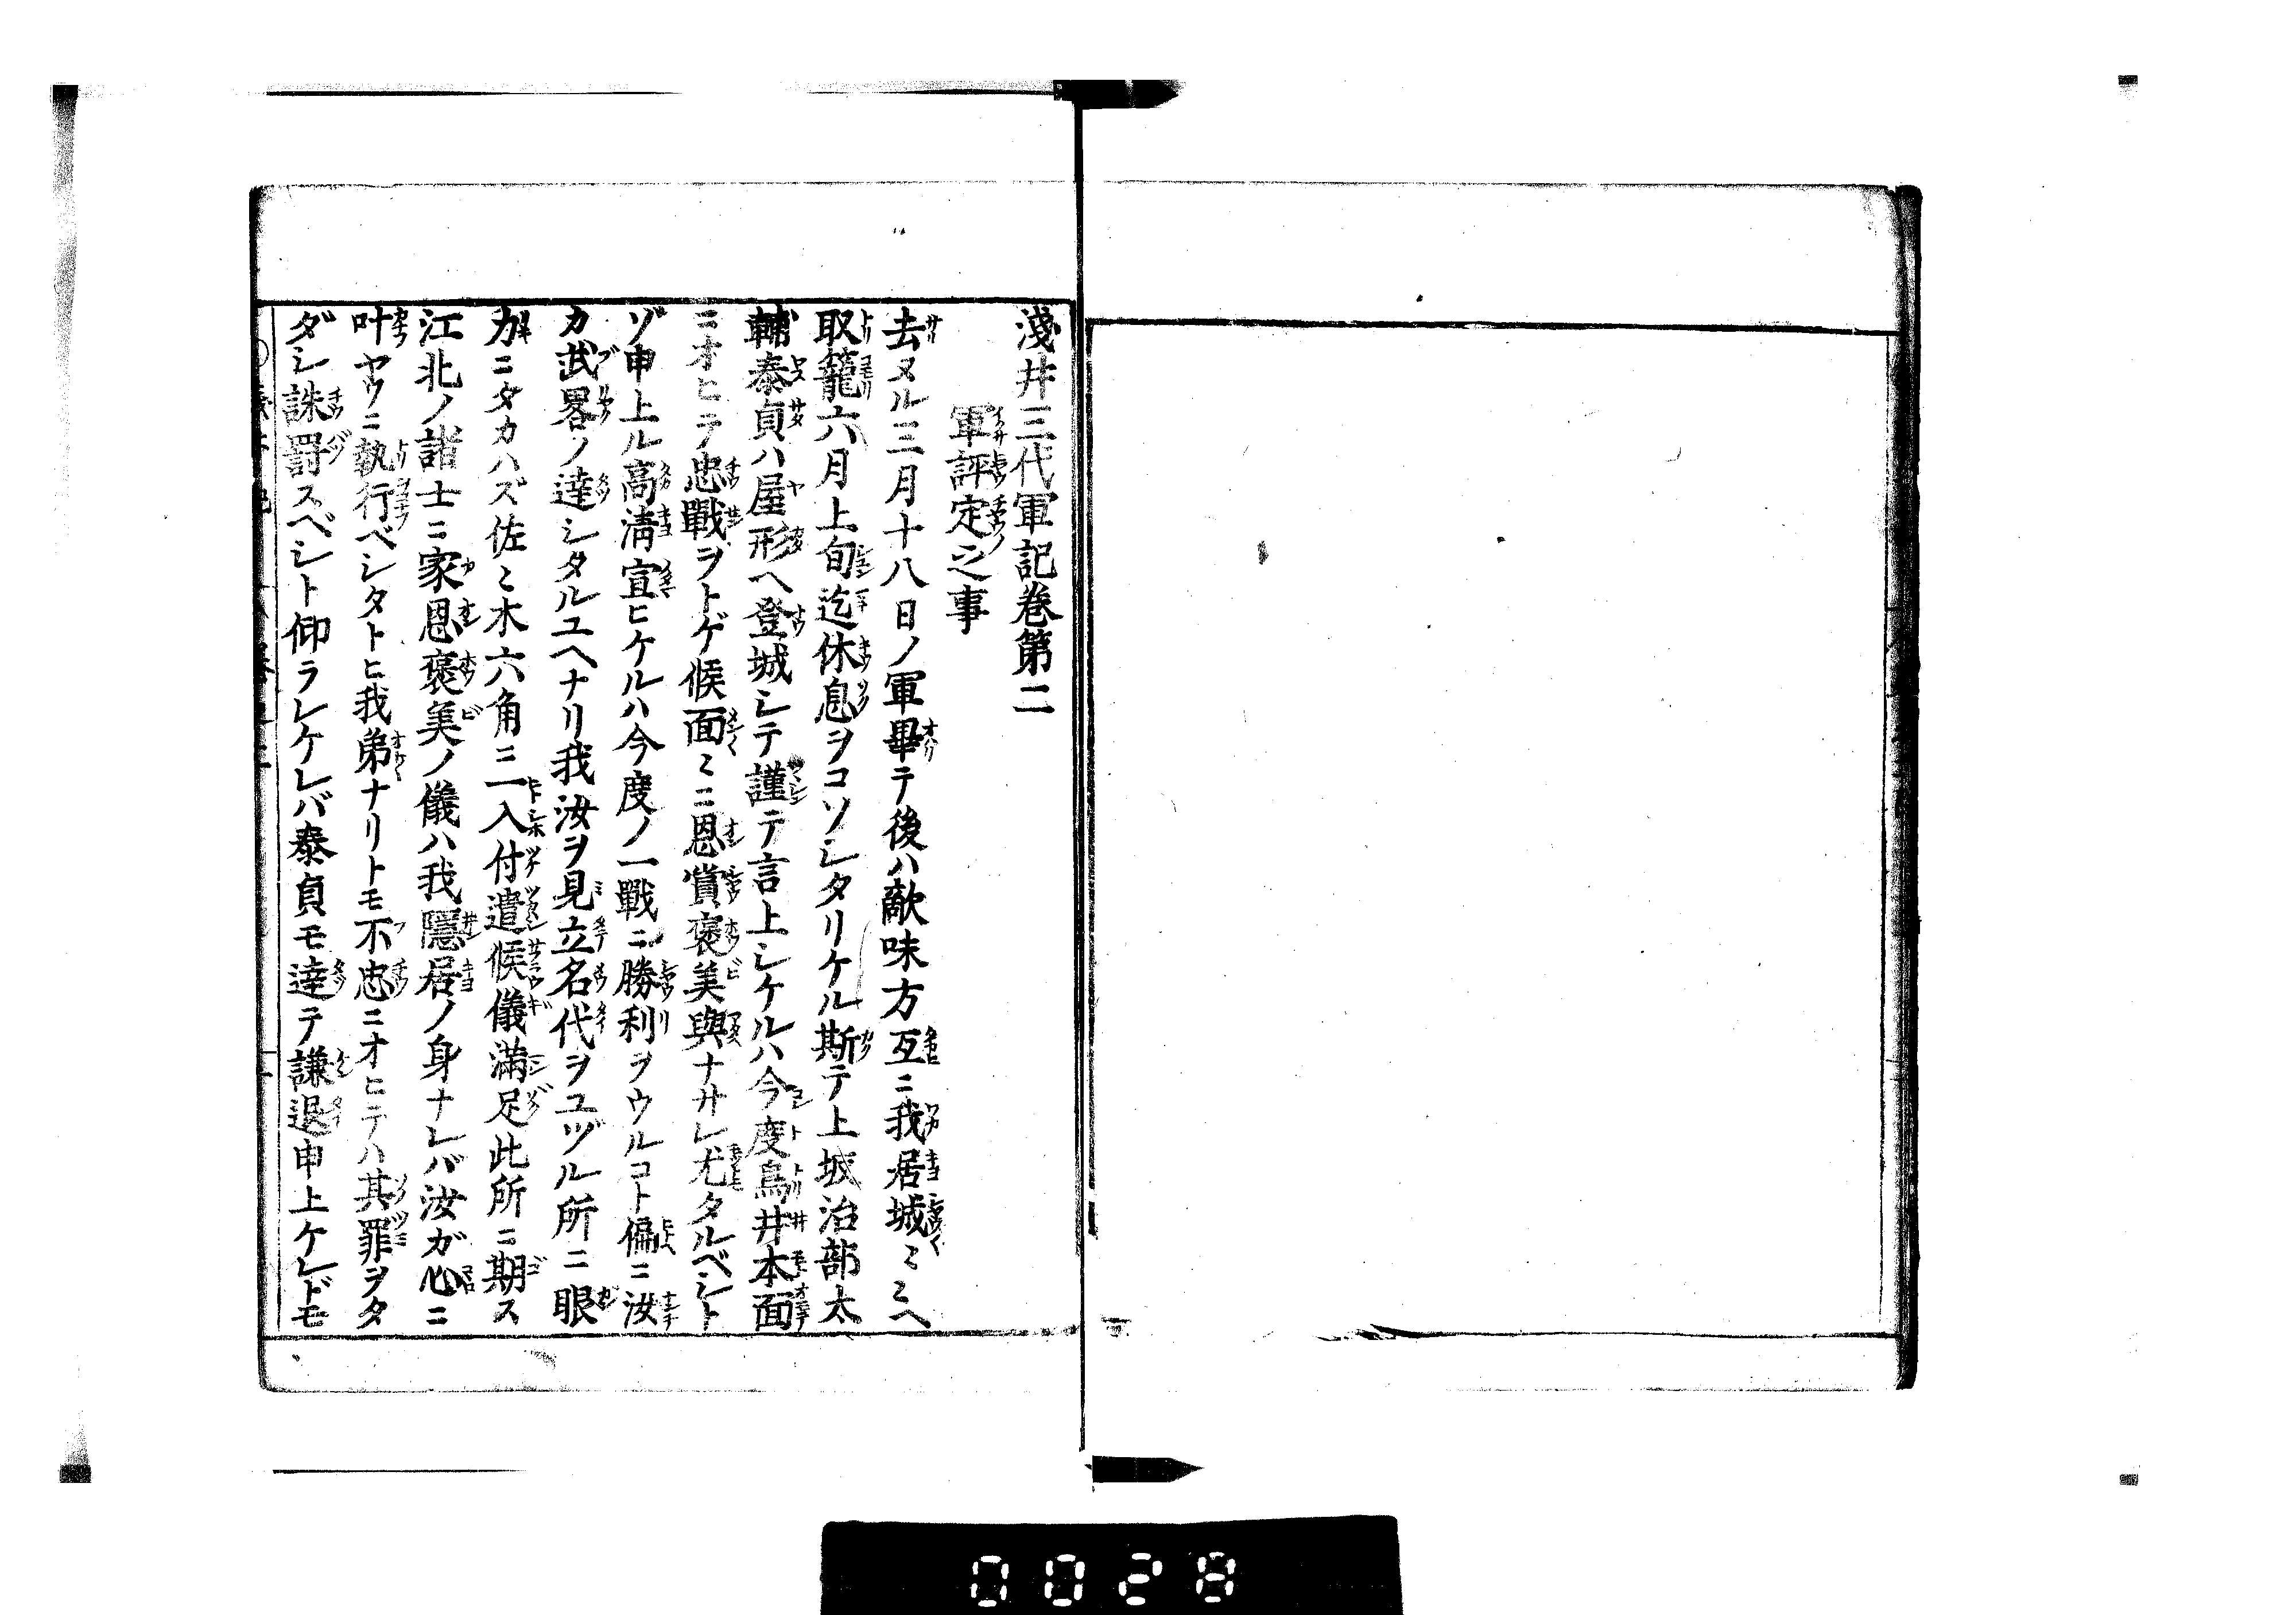 淺井三代軍記卷第二
軍評定之事
去ヌル三月十八日ノ軍畢テ後ハ敵味方互ニ我居城ミミヘ
取籠六月上旬迄休息ヲコソシタリケル斯テ上坂治部太
輔泰貞ハ屋形ヘ登城シテ謹テ言上シケルハ今度鳥井本面
ニオヒテ忠戰ヲトゲ候面ミニ恩賞褒美與ナサレ尤タルベシト
ゾ申上ル高清宣ヒケルハ今度ノ一戰ニ勝利ヲウルコト偏ニ汝
カ武畧ノ達シタルユヘナリ我汝ヲ見立名代ヲユヅル所ニ眼
力ニタカハズ佐ミ木六角ニ一入付遣候儀滿足此所ニ期ス
江北ノ諸士ニ家恩褒美ノ儀ハ我隱居ノ身ナレバ汝ガ心ニ
叶ヤウニ執行ベシタトヒ我弟ナリトモ不忠ニオヒテハ其罪ヲタ
ダシ誅罰スベシト仰ラレケレバ泰貞モ達テ謙退申上ケレドモ
0028